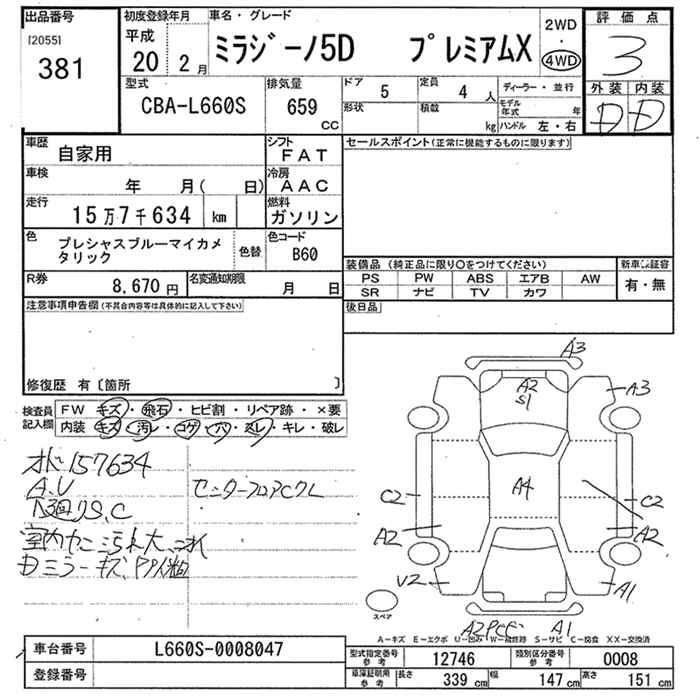 出品番号
[2055]
381
初度登録年月
平成
20 2 月
車名・グレード
ミラジーノ5D プレミアムX
2WD
・
4WD
評価点
3
外装 内装
D D
型式
CBA-L660S
排気量
659
CC
ドア 5
形状
定員 4 人
積載 kg
ディーラー・並行
モデル年式 年
ハンドル 左・右
車歴
自家用
シフト
FAT
車検
年 月( 日)
冷房
AAC
走行
15万7千634 km
燃料
ガソリン
色
プレシャスブルーマイカメ
タリック
色替
色コード
B60
R券
8,670 円
名変通知期限
月 日
セールスポイント(正常に機能するものに限ります)
装備品(純正品に限り○をつけてください)
新車保証書
PS PW ABS エアB AW
SR ナビ TV カワ
有・無
後日品
注意事項申告欄(不具合内容等は具体的に記入して下さい)
修復歴 有〔箇所 〕
検査員
記入欄
FW キズ・飛石・ヒビ割・リペア跡・×要
内装 キズ・汚レ・コゲ・穴・スレ・キレ・破レ
オド157634
A.U
下廻りS.C
センターフロアCクレ
A3
A2
S1
A3
A4
C2
C2
A2
A2
U2
A1
A1
スペア
A-キズ E-エクボ U-凹み W-補修跡 S-サビ C-腐食 XX-交換済
車台番号 L660S-0008047
登録番号
型式指定番号
参考
12746
類別区分番号
参考
0008
車庫証明用
参考
長さ 339 cm 幅 147 cm 高さ 151 cm